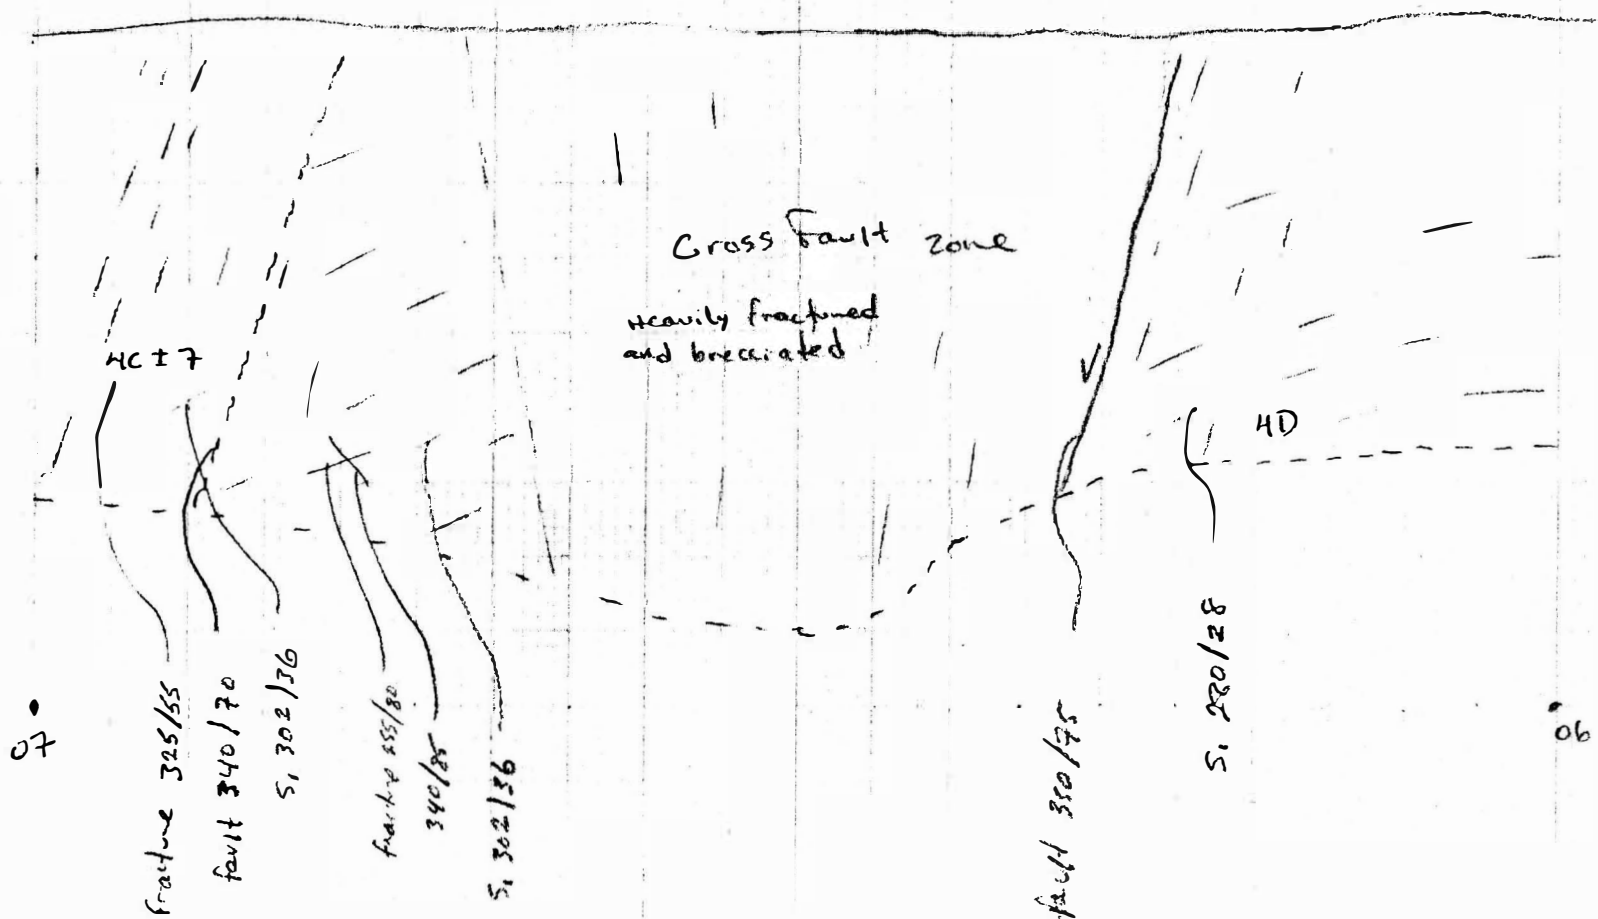 Cross Fault Zone
Heavily fractured
and brecciated
4C ± 7
4D
07
06
fracture 325/55
fault 340/70
S1 302/36
340/85
S1 302/36
fault 350/75